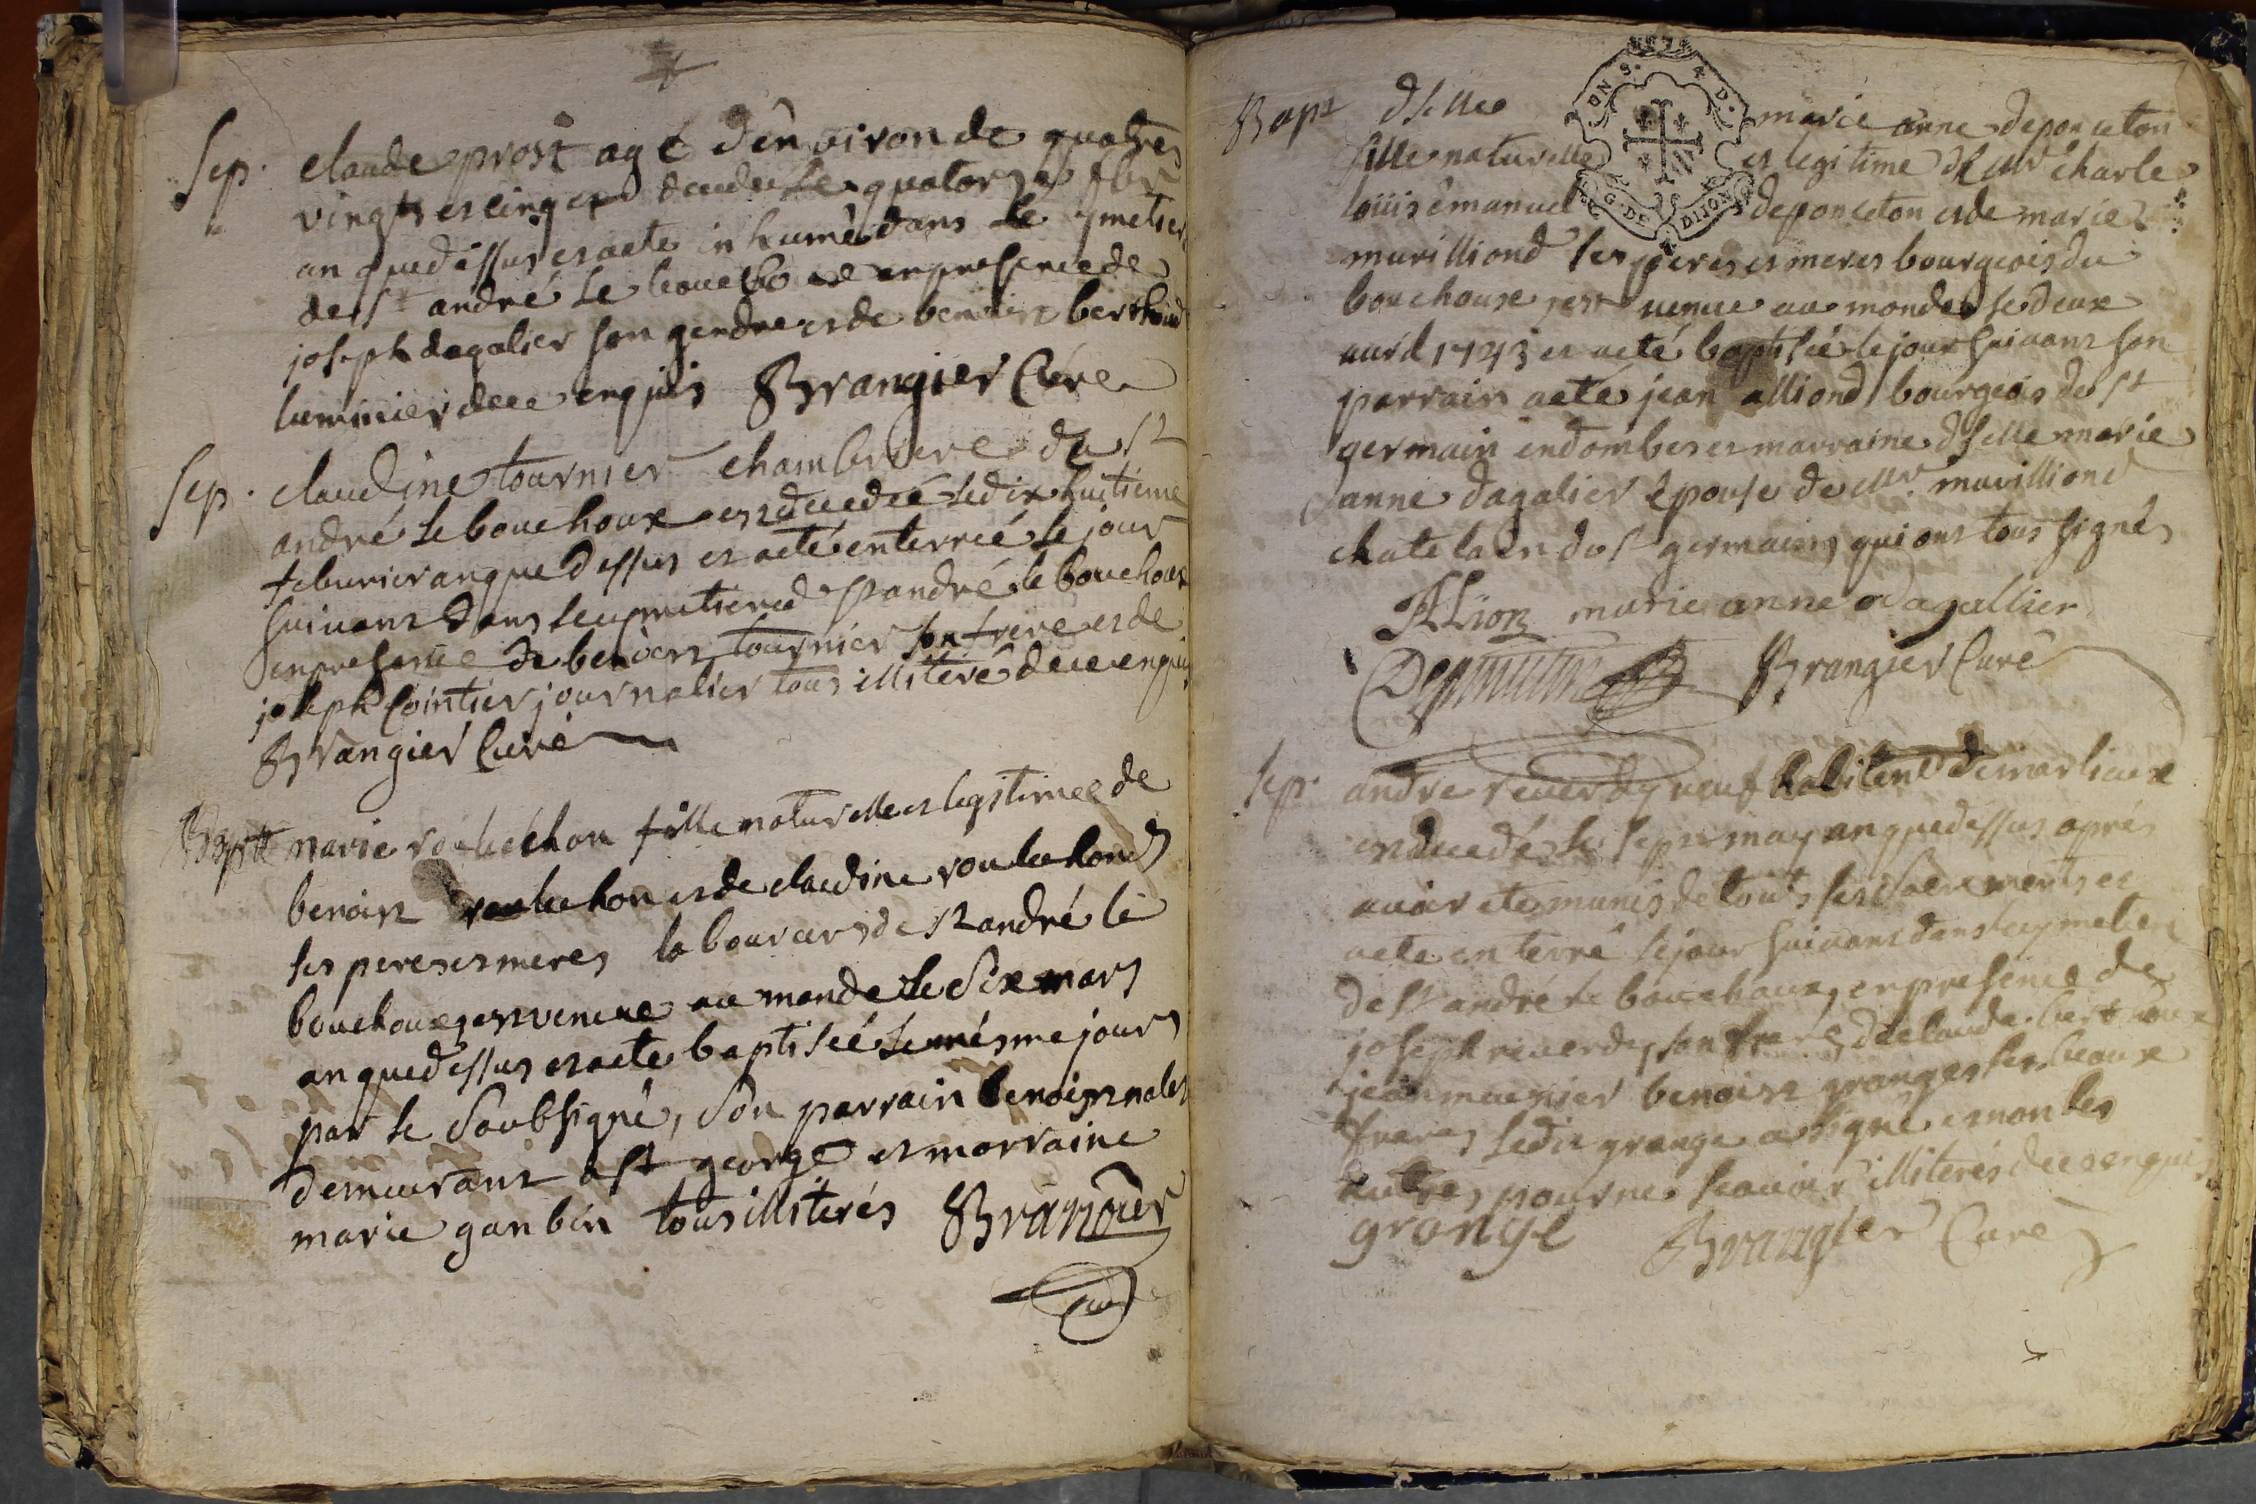 Sep. claude prost agé d'environ de quatres
vingts et cinq est decedé le quatorze fbr
an quedessus et acte inhumé dans le cymetier
de st andré le bouchoux en presence de
joseph dagalier son gendre et de benoist berthoud
luminier de ce enquis Brangier Cure
Sep. claudine tournier chambriere du st
andré le bouchoux est decedée le dix huitieme
feburier an que dessus et acté enterrée le jour
suivant dans le cymetier de st andré le bouchoux
en presence de benoist tournier son frere et de
joseph Cointier journalier tous illiteré de ce enquis
Brangier Curé
Bapt marie rouluchon fille naturelle et legitimee de
benoist rouluchon et de claudine rouluchond
ses peres et meres laboureurs de st andré le
bouchoux est venue au monde le six mars
an quedessus et acte baptisée le mésme jour
par le soubsigné, son parrain benoist
demeurant a st george et marraine
marie ganbin tous illiterés Brangier
curé
Bapt dselle marie anne deponceton
fille naturelle et legitime de Mr charle
louis émanuel deponceton et de marie
muvilliond ses peres et meres bourgeois du
bouchoux, est venue au monde le deux
avril 1743 et acté baptisée le jour suivant son
parrain acté jean alliond bourgeois du st
germain en dombes et marraine dselle marie
anne dagalier épouse de Mr. muvilliond
chatelain du st germain, qui ont tous signés
ALion marie anne dagallier
Brangier Curé
Sep. andre reverdy veuf habitent de marlieux
est decedé le sept may an quedessus aprés
avoir ete munis de touts ses sacrements et
acte enterré le jour suivant dans le cymetier
de st andré le bouchoux, en presence de
joseph reverdy son frere, de claude
jean meunier benoist granges ses beaux
freres ledit grange a signé et non les
autres pour ne scavoir illiterés de ce enquis
grange Brangier Curé
G. DE DIJON